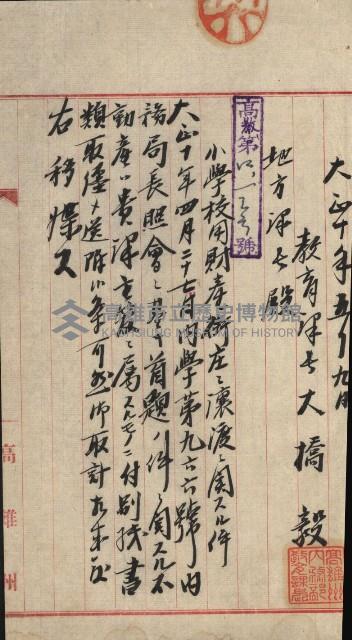 大正十年五月九日
教育課長大橋毅
地方課長殿
高教第 號
小學校用財產街庄ニ讓渡ニ關スル件
大正十年四月二十七日內學第九六六號內
務局長照會ニ基キ首題ノ件ニ關スル不
動產ハ貴課主管ニ屬スルモノニ付別紙書
類取纏メ送附候條可然御取計相成度
右移牒ス
高雄州
高雄市立歷史博物館
KAOHSIUNG MUSEUM OF HISTORY